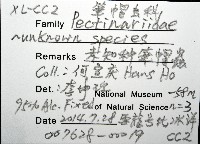 XL-CC2 筆帽虫科
Family Pectinariidae
~unknown species
Remarks 未知種筆帽蟲
Coll.: 何宣慶 Hans Ho
Det.: National Museum -58m
95% Alc. Fixed of Natural Science n=3
Date 2014.7.28
007628-00019 CC2